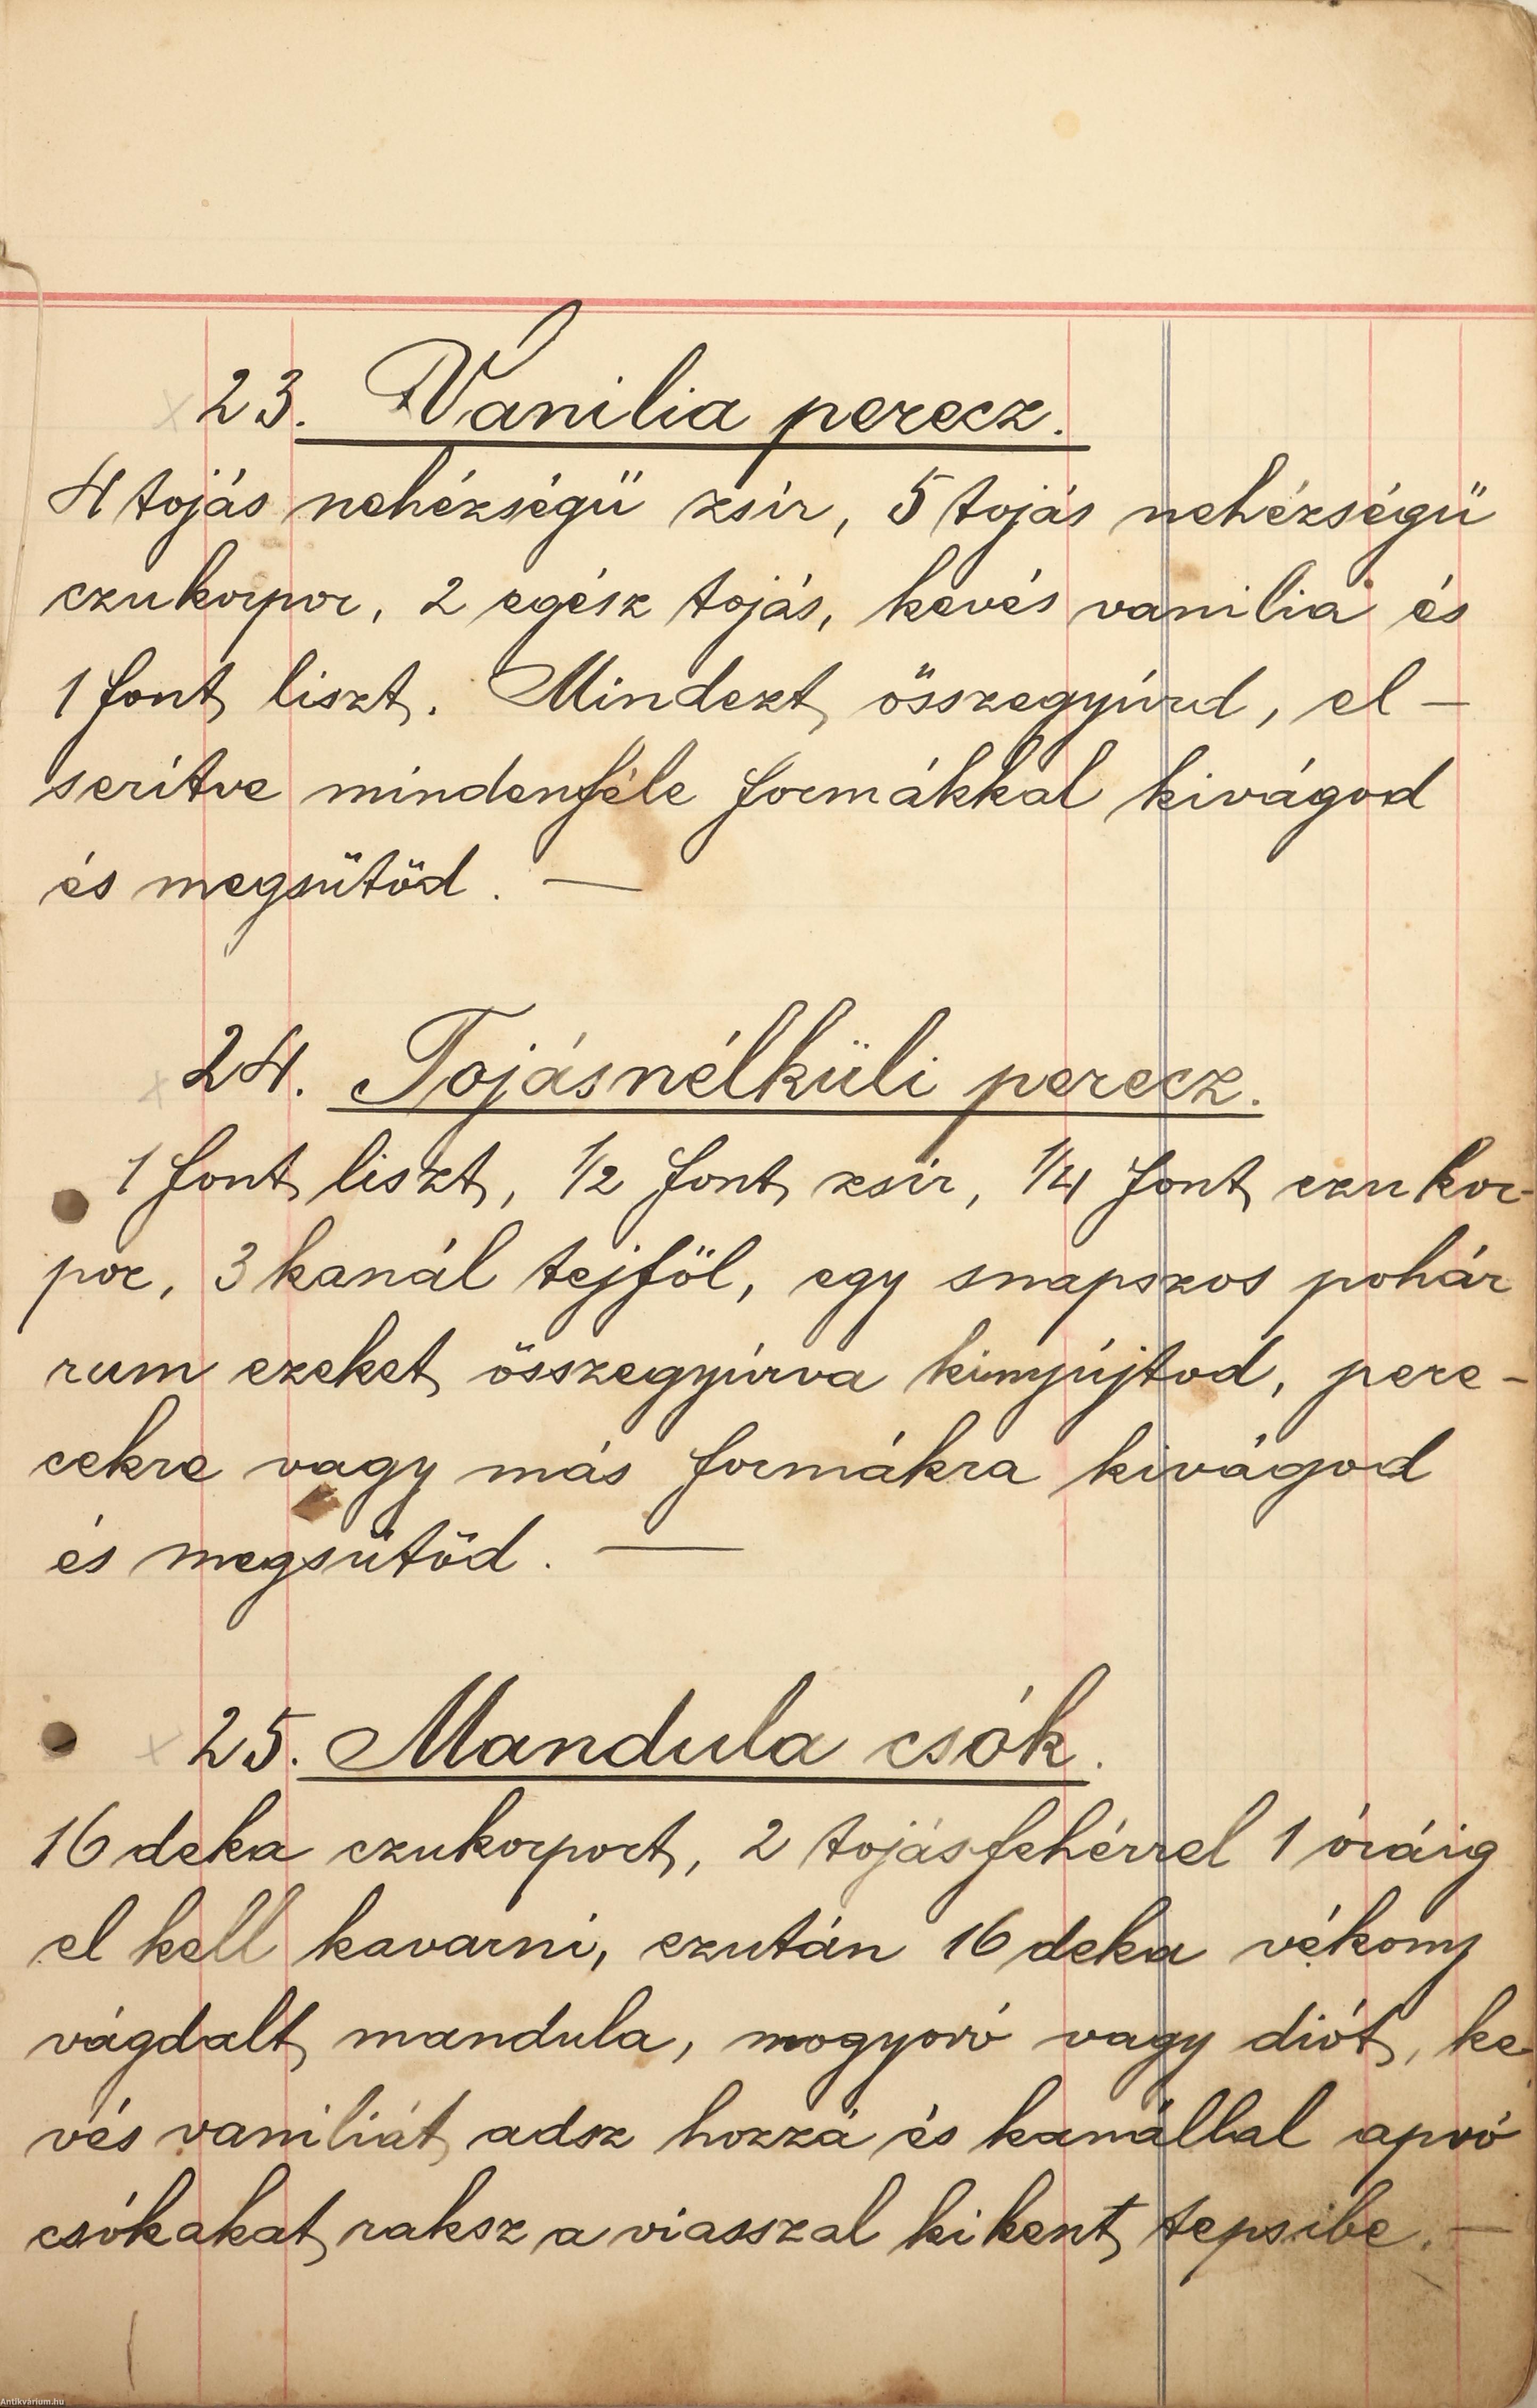 23. Vanilia perecz.
4 tojás nehézségü zsír, 5 tojás nehézségü
czukorpor, 2 egész tojás, kevés vanilia és
1 font liszt. Mindezt összegyúrd, el-
serítve mindenféle formákkal kivágod
és megsütöd. —
24. Tojásnélküli perecz.
1 font liszt, 1/2 font zsír, 1/4 font czukor-
por, 3 kanál tejföl, egy snapszos pohár
rum ezeket összegyúrva kinyújtod, pere-
cekre vagy más formákra kivágod
és megsütöd. —
25. Mandula csók.
16 deka czukorport, 2 tojásfehérrel 1 óráig
el kell kavarni, ezután 16 deka vékony
vágdalt mandula, mogyoró vagy diót, ke-
vés vaniliát adsz hozzá és kanállal apró
csókakat raksz a viasszal kikent tepsibe. —
Antikvárium.hu